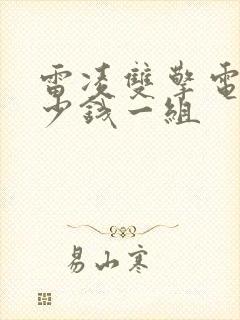 雷凌雙擎電
少錢一組
易山寒